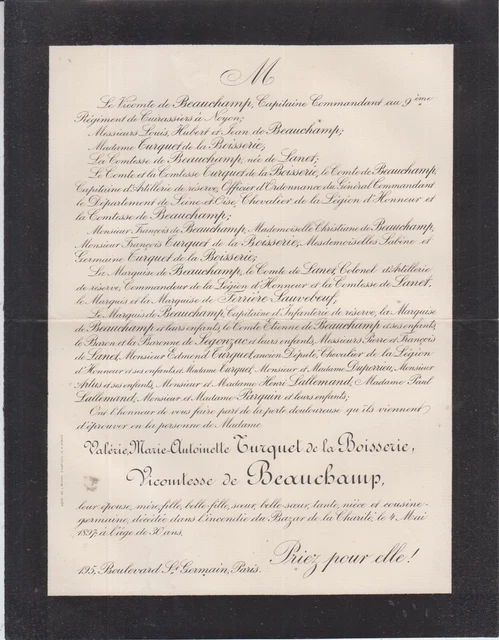 M
Le Vicomte de Beauchamp, Capitaine Commandant au 9ème
Régiment de Cuirassiers à Noyon;
Messieurs Louis, Hubert et Jean de Beauchamp;
Madame Turquet de la Boisserie;
La Comtesse de Beauchamp, née de Lanet;
Le Comte et la Comtesse Turquet de la Boisserie, le Comte de Beauchamp,
Capitaine d'Artillerie de réserve, Officier d'Ordonnance du Général Commandant
le Département de Seine et Oise, Chevalier de la Légion d'Honneur et
la Comtesse de Beauchamp;
Monsieur François de Beauchamp, Mademoiselle Christiane de Beauchamp,
Monsieur François Turquet de la Boisserie, Mesdemoiselles Sabine et
Germaine Turquet de la Boisserie;
La Marquise de Beauchamp, le Comte de Lanet, Colonel d'Artillerie
de réserve, Commandeur de la Légion d'Honneur et la Comtesse de Lanet,
le Marquis et la Marquise de Ferrière Sauvebeuf;
Le Marquis de Beauchamp, Capitaine d'Infanterie de réserve, la Marquise
de Beauchamp et leurs enfants, le Comte Etienne de Beauchamp et ses enfants,
le Baron et la Baronne de Segonzac et leurs enfants, Messieurs Pierre et François
de Lanet, Monsieur Edmond Turquet ancien Député, Chevalier de la Légion
d'Honneur et ses enfants, Madame Turquet, Monsieur et Madame Duperrieu, Monsieur
et ses enfants, Monsieur et Madame Henri Lallemand, Madame Paul
Lallemand, Monsieur et Madame Pinquin et leurs enfants;
Ont l'honneur de vous faire part de la perte douloureuse qu'ils viennent
d'éprouver en la personne de Madame
Valérie, Marie-Antoinette Turquet de la Boisserie,
Vicomtesse de Beauchamp,
leur épouse, mère, fille, belle-fille, sœur, belle-sœur, tante, nièce et cousine-
germaine, décédée dans l'incendie du Bazar de la Charité, le 4 Mai
1897, à l'âge de 30 ans.
Priez pour elle!
195, Boulevard St Germain, Paris.